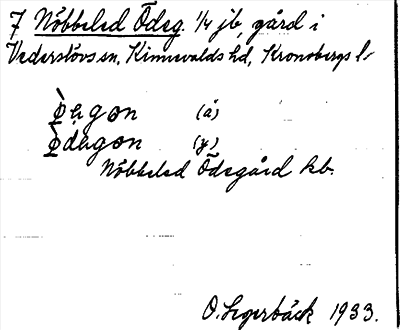 7 Nöbbeled Ödeg. 1/4 jb, gård i
Vederslövs sn, Kinnevalds hd, Kronobergs l.
(å)
(y)
Nöbbeled Ödegård kb.
O. Segerbäck 1933.